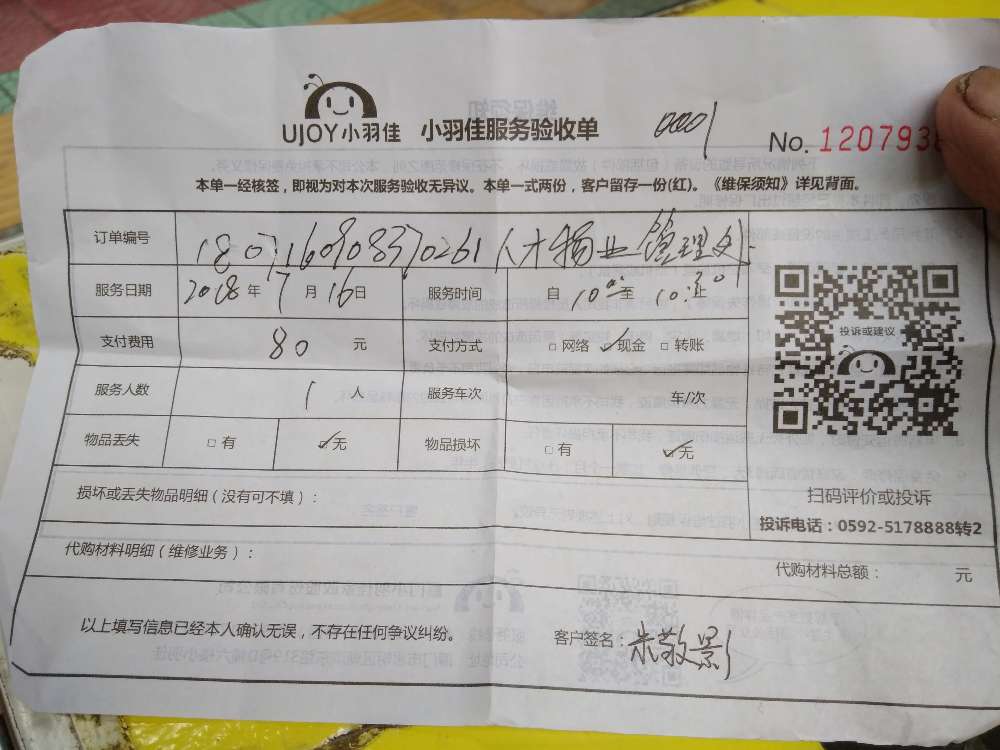 UJOY小羽佳 小羽佳服务验收单 0001 No. 120793
本单一经核签，即视为对本次服务验收无异议。本单一式两份，客户留存一份(红)。《维保须知》详见背面。
订单编号 1807160908370261 人才物业管理处
服务日期 2018年7月16日 服务时间 自10:00至10:30止
支付费用 80 元 支付方式 □网络 ☑现金 □转账
投诉或建议
服务人数 1 人 服务车次 车/次
物品丢失 □有 ☑无 物品损坏 □有 ☑无
损坏或丢失物品明细（没有可不填）：
扫码评价或投诉
投诉电话：0592-5178888转2
代购材料明细（维修业务）：
代购材料总额： 元
以上填写信息已经本人确认无误，不存在任何争议纠纷。
客户签名：朱敬影